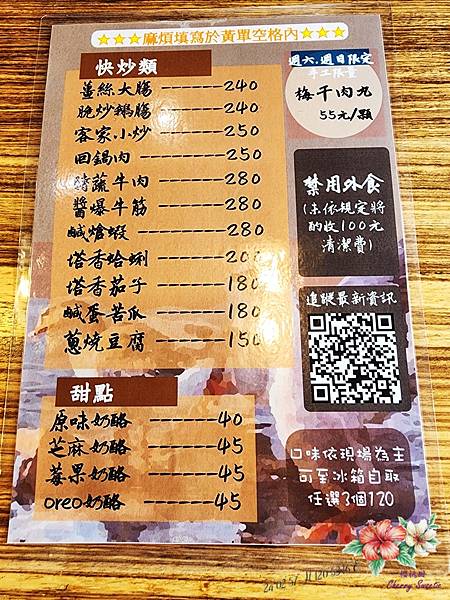 ☆☆☆麻煩填寫於黃單空格內☆☆☆
快炒類
薑絲大腸-------240
脆炒鵝腸-------240
客家小炒-------250
回鍋肉---------250
時蔬牛肉-------280
醬爆牛筋-------280
鹹嗆蝦---------280
塔香蛤蜊-------200
塔香茄子-------180
鹹蛋苦瓜-------180
蔥燒豆腐-------150
甜點
原味奶酪-------40
芝麻奶酪-------45
莓果奶酪-------45
oreo奶酪-------45
週六.週日限定
手工限量
梅干肉丸
55元/顆
禁用外食
(未依規定將
酌收100元
清潔費)
追蹤最新資訊
口味依現場為主
可至冰箱自取
任選3個120
Cherry Sweetie